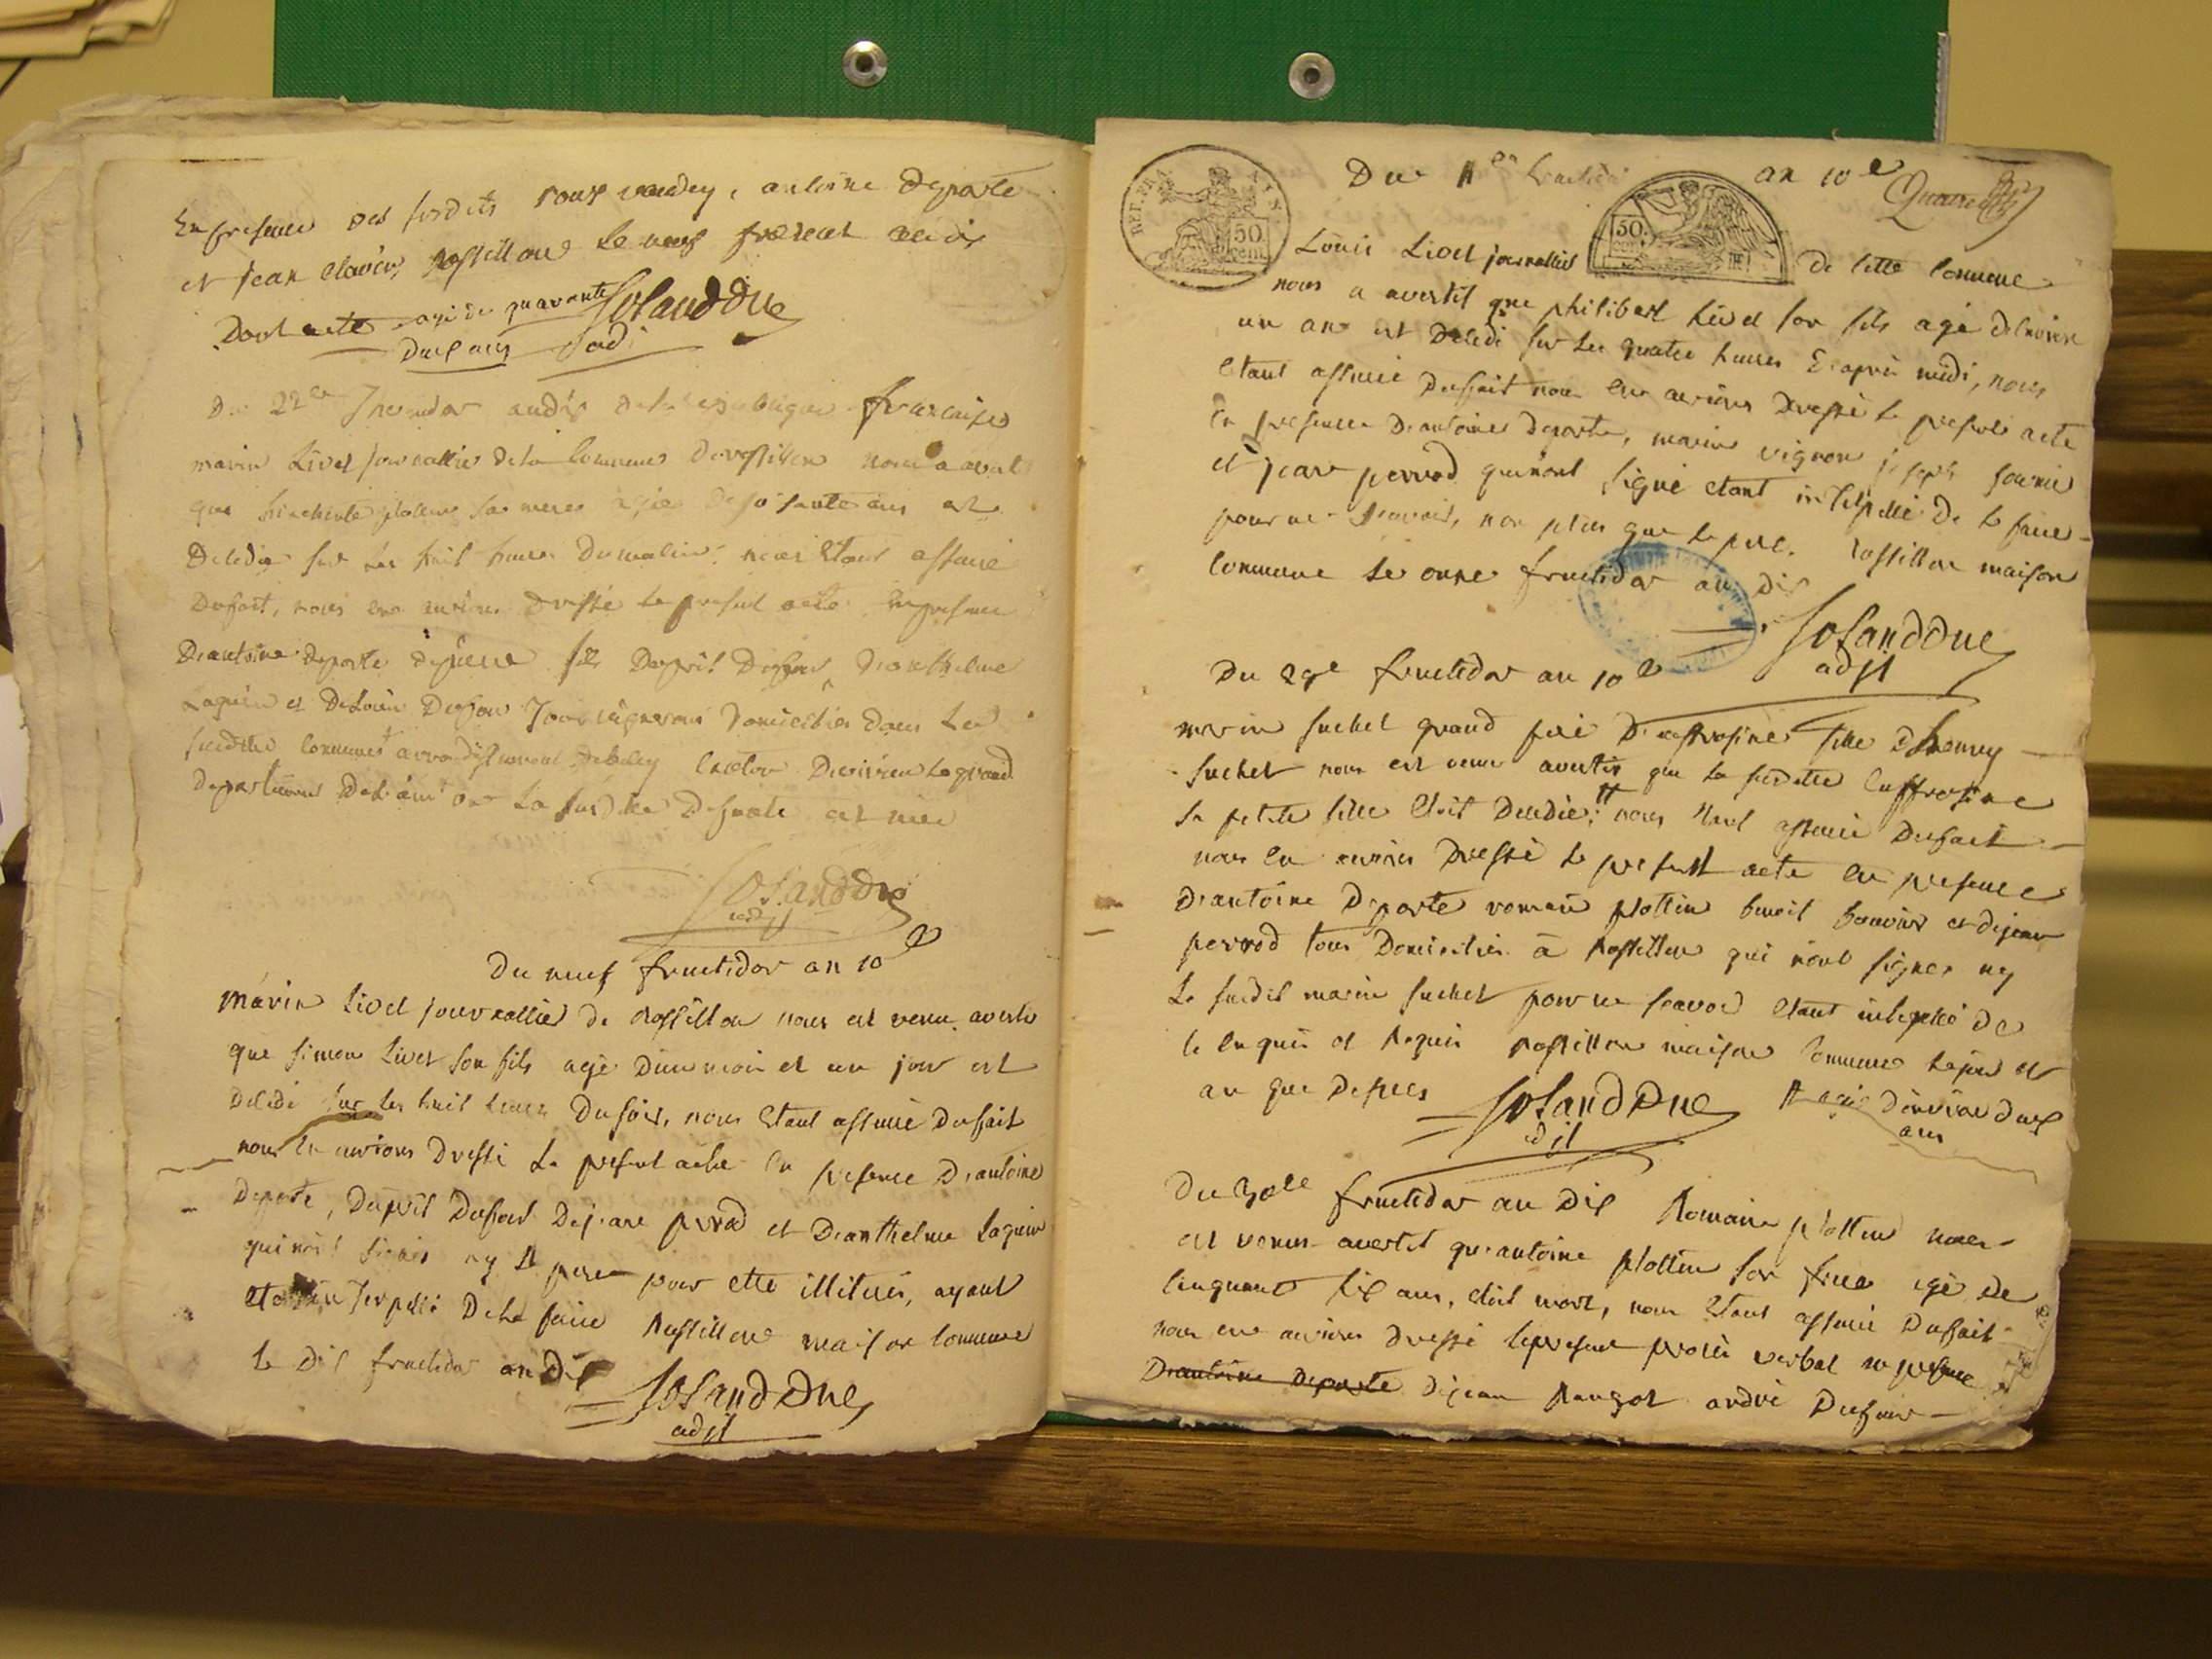 En presence des susdits roux vaudey, antoine Deporte
et jean clavier, Rossillon le neuf prereal an dix
Dont acte agé de quarante Solanddue
Deux ans adj
Du 22e Thermidor an dix de la republique française
marin Livet journallie de la commune de rossillon nous a averti
que plottin sa mere agée de soisante ans est
Decedée sur les huit heures du matin. nous étant assuré
Dufait, nous en avions dressé le present acte en presence
D'antoine Deporte fils Duprit Dufour, D'anthelme
Laguin et De Louis Dufour Tous vignerons Domiciliés dans la
susditte commune arrondissement de belley canton De virieu le grand
Departement De L'ain ou la susditte Defunte est née
Solanddue
adjt
Du neuf fructidor an 10e
marin Livet journallier de Rossillon nous est venu avertir
que simon Livet son fils agé d'un mois et un jour est
Decedé sur les huit heures Dusoir, nous étant assuré Dufait
nous en avions Dressé le present acte en presence D'antoine
Deporte, Duprit Dufour De jean perrod et D'anthelme Laguin
qui n'ont signés ny le pere pour être illitéré, ayant
été interpellé De le faire Rossillon maison commune
le Dix fructidor an Dix
Solanddue
adjt
Du 11e fructidor an 10e
REP. FRA 50 cent.
50. cent.
Louis Livet journallier de cette commune
nous a avertit que philibert Livet son fils agé d'environ
un an est Decedé sur les quatre heures D'après midi, nous
étant assuré Dufait nous en avions Dressé le present acte
En presence D'antoine Deporte, marin vignon joseph fournier
et jean perrod qui n'ont signé étant interpellé De le faire
pour ne sçavoir, non plus que le pere. Rossillon maison
Commune le onze fructidor an Dix
Solanddue
adjt
Du 29e fructidor an 10e
marin suchet grand pere D'euffrosine fille D'
suchet nous est venu avertir que la susditte Euffrosine
sa petite fille étoit Decedée; nous étant assuré Dufait
nous en avions Dressé le present acte en presence
D'antoine Deporte romain plottin benoit bouvier et de jean
perrod tous Domiciliés à Rossillon qui n'ont signés ny
Le susdit marin suchet pour ne scavoir étant interpellé de
le enquis et Requis Rossillon maison commune le jour et
an que Dessus Solanddue agée d'environ deux
adjt ans
Du 30e fructidor an Dix Romain plottin nous
est venu avertit qu'antoine plottin son frere agé de
Cinquante six ans, étoit mort, nous étant assuré Dufait
nous en avions dressé le present procès verbal en presence
D'antoine Deporte de jean Rangot andré Dufour